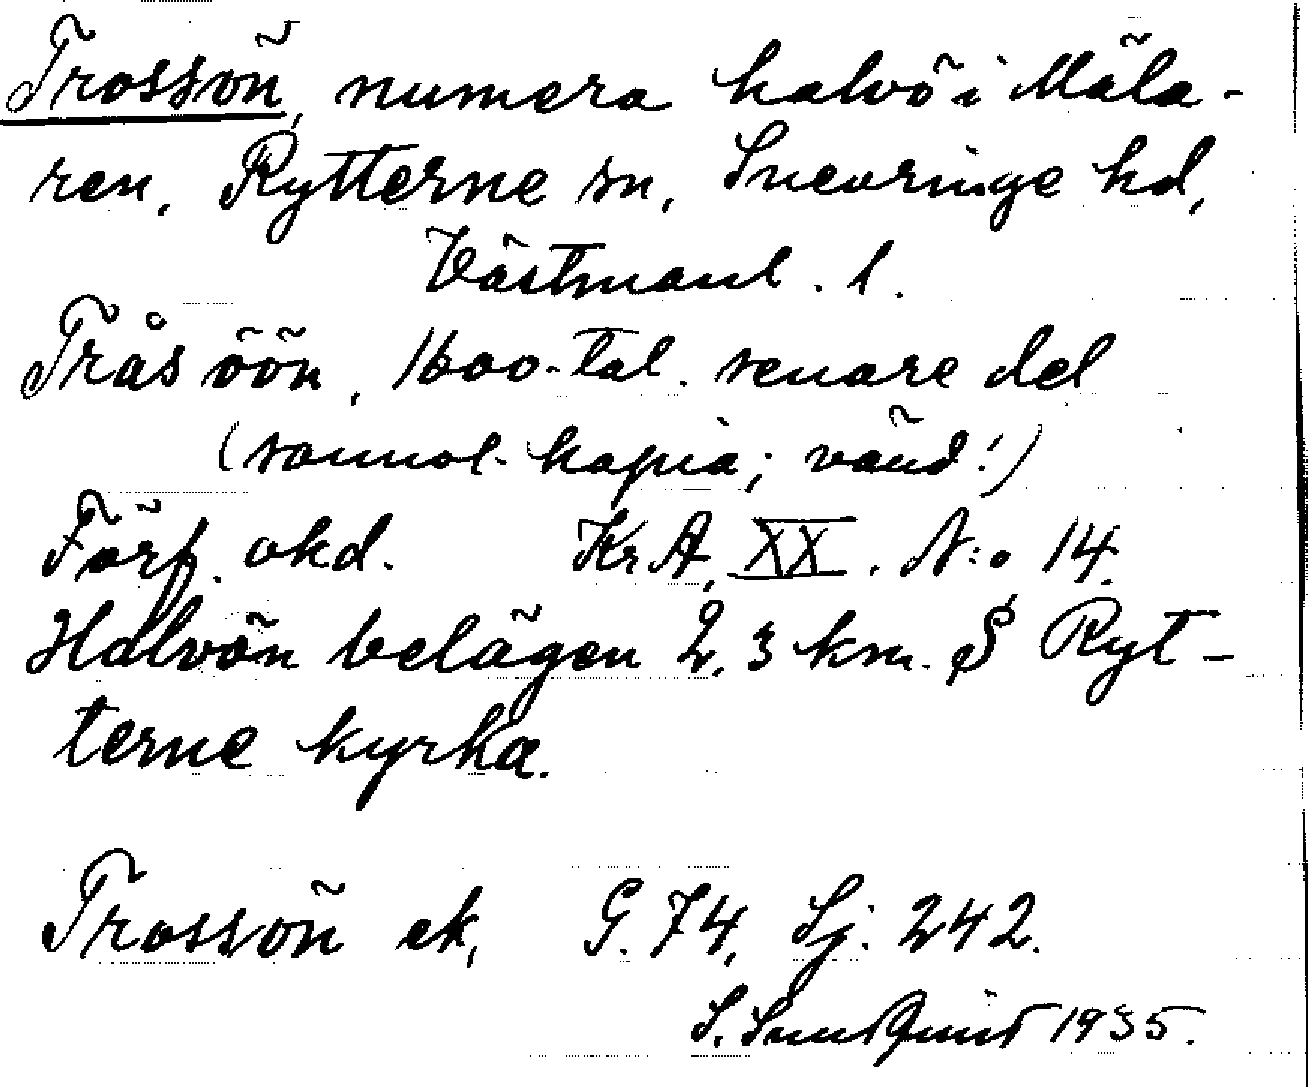 Trossön, numera halvö i Mäla-
ren, Rytterne sn, Snevringe hd,
Västmanl. l.
Trås öön, 1600-tal. senare del
(sannol. kopia; vänd!)
Förf. okd. KrA, XX. N:o 14.
Halvön belägen 2,3 km. S Ryt-
terne kyrka.
Trossön ek, G. 74, Sj. 242.
S. Sundquist 1935.